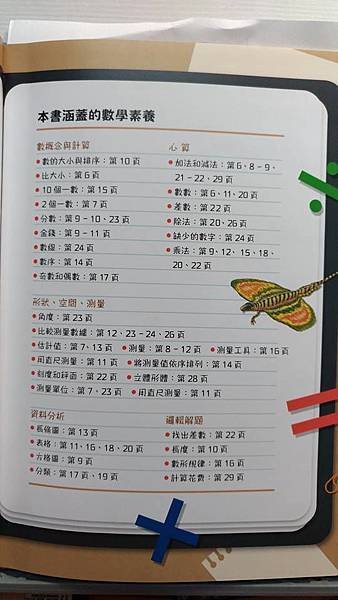 本書涵蓋的數學素養
數概念與計算
●數的大小與排序：第10頁
●比大小：第6頁
●10個一數：第15頁
●2個一數：第7頁
●分數：第9－10、23頁
●金錢：第9－11頁
●數線：第24頁
●數序：第14頁
●奇數和偶數：第17頁
心算
●加法和減法：第6、8－9、
21－22、29頁
●數數：第6、11、20頁
●差數：第22頁
●除法：第20、26頁
●缺少的數字：第24頁
●乘法：第9、12、15、18、
20、22頁
形狀、空間、測量
●角度：第23頁
●比較測量數據：第12、23－24、26頁
●估計值：第7、13頁 ●測量：第8－12頁 ●測量工具：第16頁
●用直尺測量：第11頁 ●將測量值依序排列：第14頁
●刻度和秤面：第22頁 ●立體形體：第28頁
●測量單位：第7、23頁 ●用直尺測量：第11頁
資料分析
●長條圖：第13頁
●表格：第11、16、18、20頁
●方格圖：第9頁
●分類：第17頁、19頁
邏輯解題
●找出差數：第22頁
●長度：第10頁
●數形規律：第16頁
●計算花費：第29頁